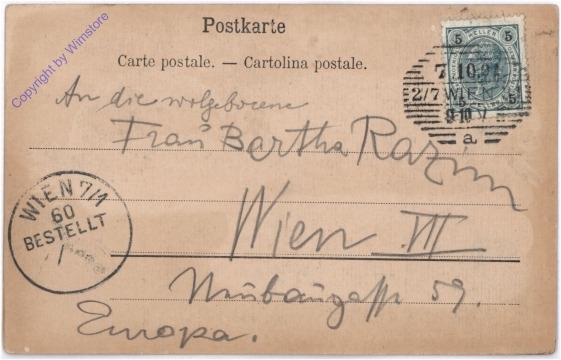 Postkarte
Carte postale. — Cartolina postale.
An die wolgeborene
Frau Bertha Razim
Wien VII
Neubaugasse 59.
Europa.
5 HELLER 5
7.10.
2/7 WIEN
9-10 V
5 5
a
WIEN 7/1
60
BESTELLT
Copyright by Wimstore